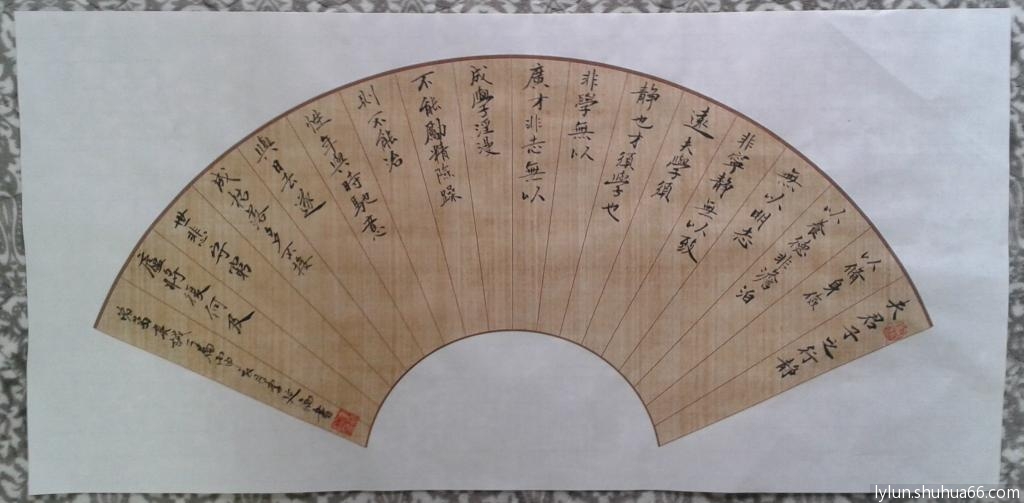 夫君子之行静
以脩身儉
以養德非澹泊
無以明志
非寧静無以致
遠夫學須
静也才須學也
非学無以
廣才非志無以
成學淫漫
不能勵精險躁
則不能治
性年與時馳意
與日去遂
成枯落多不接
世悲守窮
廬將復何及
lylun.shuhua66.com